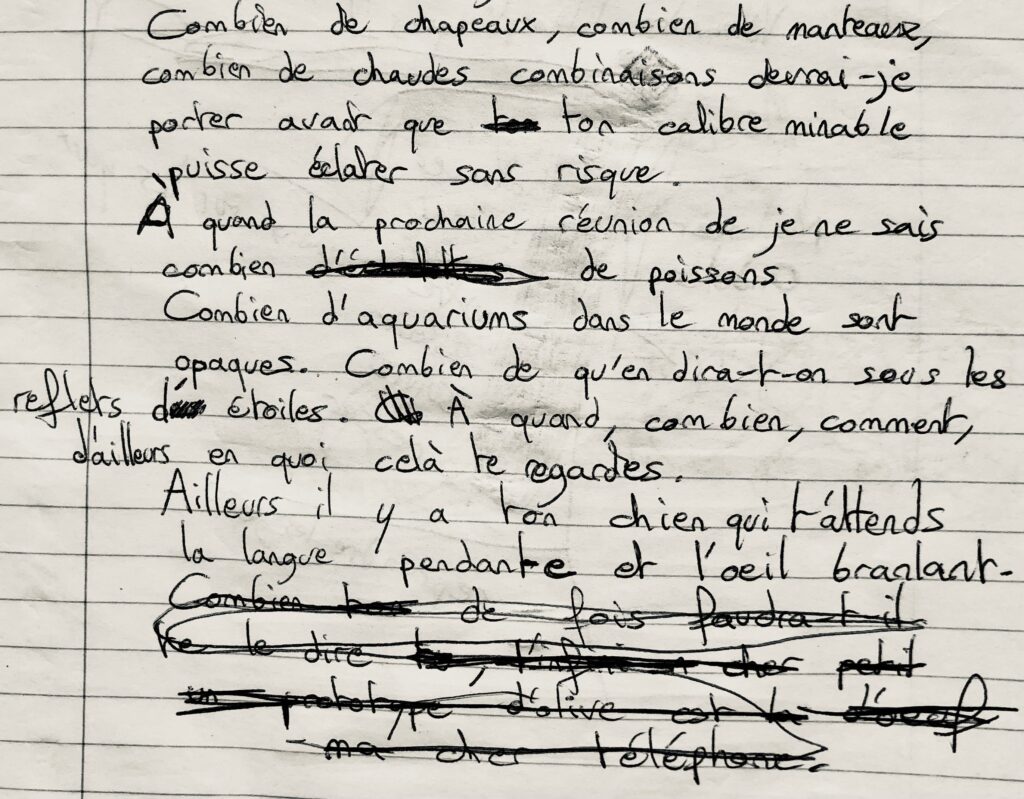 Combien de chapeaux, combien de manteaux,
combien de chaudes combinaisons devrai-je
porter avant que ton calibre minable
puisse éclater sans risque.
À quand la prochaine réunion de je ne sais
combien de poissons
Combien d'aquariums dans le monde sont
opaques. Combien de qu'en dira-t-on sous les
reflets d étoiles. À quand, combien, comment,
d'ailleurs en quoi celà te regardes.
Ailleurs il y a ton chien qui t'attends
la langue pendante et l'oeil branlant.
Combien de fois faudra-t il
te le dire cher petit
un prototype d'olive est la d'oeuf
ma cher téléphone.